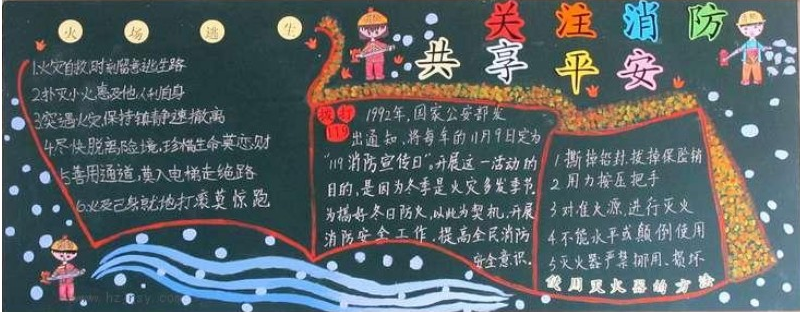 火场逃生
1.火灾自救,时刻留意逃生路
2.扑灭小火,惠及他人利自身
3.突遇火灾,保持镇静速撤离
4.尽快脱离险境,珍惜生命莫恋财
5.善用通道,莫入电梯走绝路
6.火及己身,就地打滚莫惊跑
关注消防
共享平安
拨打
119
1992年,国家公安部发
出通知,将每年的11月9日定为
“119消防宣传日”,开展这一活动的
目的,是因为冬季是火灾多发季节,
为搞好冬日防火,以此为契机,开展
消防安全工作,提高全民消防
安全意识.
1 撕掉铅封,拔掉保险销
2 用力按压把手
3 对准火源,进行灭火
4 不能水平或颠倒使用
5 灭火器严禁挪用、损坏
使用灭火器的方法